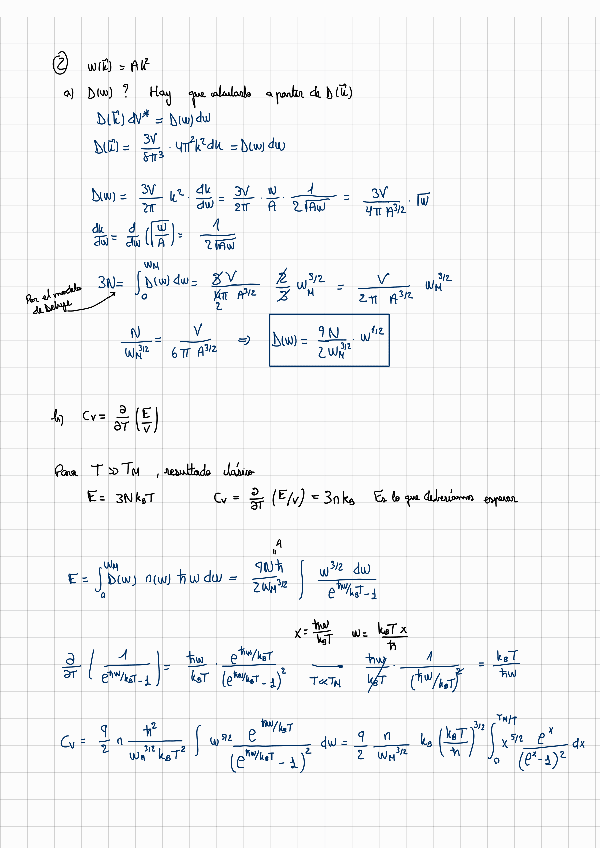 ② ω(k⃗) = Ak²
a) D(ω) ? Hay que calcularlo a partir de D(k⃗)
D(k⃗) dV* = D(ω) dω
D(k⃗) = 3V/8π³ · 4π²k² dk = D(ω) dω
D(ω) = 3V/2π k² · dk/dω = 3V/2π · ω/A · 1/(2√(Aω)) = 3V/(4π A^3/2) · √ω
dk/dω = d/dω (√(ω/A)) = 1/(2√(Aω))
Por el modelo de Debye
3N = ∫₀^ωM D(ω) dω = 3V/(4π A^3/2) 2/3 ωM^3/2 = V/(2π A^3/2) ωM^3/2
N/ωM^3/2 = V/(6π A^3/2) ⇒ D(ω) = 9N/(2ωM^3/2) · ω^1/2
b) Cv = ∂/∂T (E/V)
Para T ≫ TM , resultado clásico
E = 3N kBT Cv = ∂/∂T (E/V) = 3n kB Es lo que deberíamos esperar
E = ∫₀^ωM D(ω) n(ω) ħω dω = 9Nħ/(2ωM^3/2) ∫ ω^3/2 dω/(e^(ħω/kBT) - 1)
" A
x = ħω/kBT ω = kBT x/ħ
∂/∂T (1/(e^(ħω/kBT) - 1)) = ħω/kBT · e^(ħω/kBT)/(e^(ħω/kBT) - 1)² T≪TM ħω/kBT · 1/(ħω/kBT)² = kBT/ħω
Cv = 9/2 n ħ²/(ωM^3/2 kBT²) ∫ ω^5/2 e^(ħω/kBT)/(e^(ħω/kBT) - 1)² dω = 9/2 n/ωM^3/2 kB (kBT/ħ)^3/2 ∫₀^TM/T x^5/2 e^x/(e^x - 1)² dx